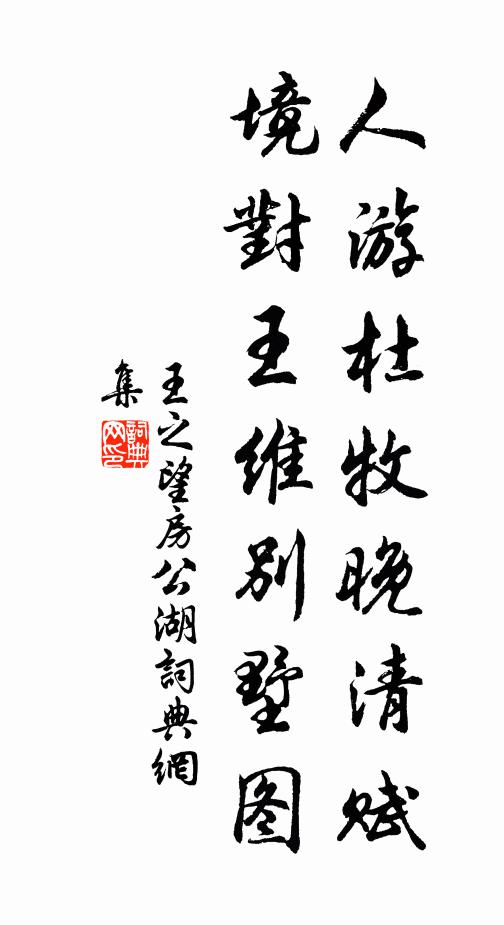 人游杜牧晚清赋
境對王维别墅图
王之望房公湖詞典網
集
詞典網印